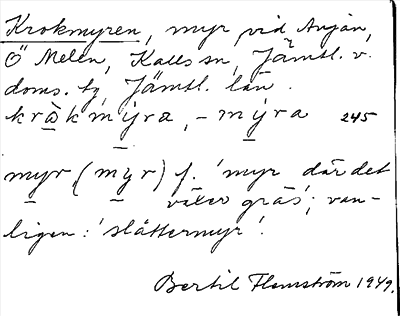 Krokmyren, myr vid Anjan,
Ö Melen, Kalls sn, Jämtl. v.
doms. tg, Jämtl. län.
kråkmyra, -myra 245
myr (myr) f. 'myr där det
växer gräs'; van-
ligen: 'slåttermyr'.
Bertil Flemström 1949.